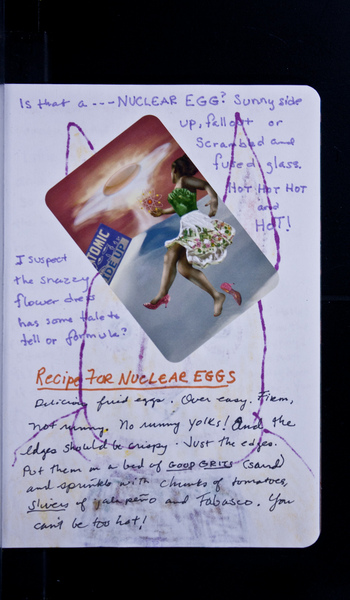 Is that a --- NUCLEAR EGG? Sunny side
up, fallout or
Scrambled and
fused glass.
HOT HOT HOT
and
HOT!
ATOMIC
I suspect
the snazzy
flower dress
has some tale to
tell or formula?
Recipe FOR NUCLEAR EGGS
Delicious fried eggs. Over easy. Firm,
not runny. No runny yolks! And the
edges should be crispy. Just the edges.
Put them on a bed of GOOD GRITS (sand)
and sprinkle with chunks of tomatoes,
slivers of jalapeño and Tabasco. You
can't be too hot!